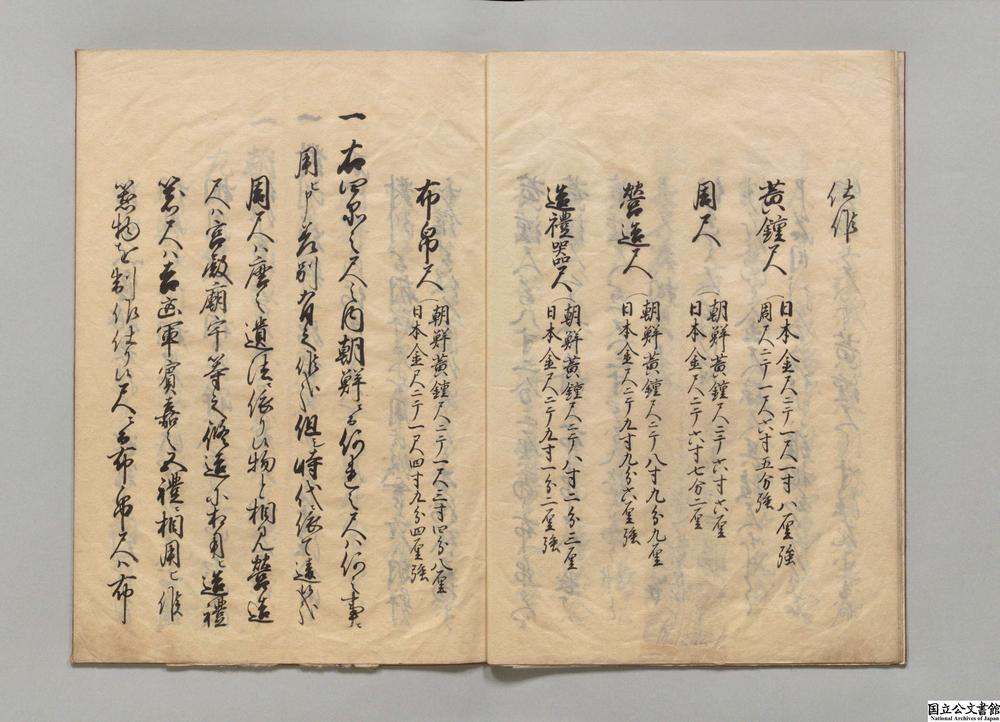 仕作
黄鐘尺
日本金尺ニテ一尺一寸八厘強
周尺ニテ一尺六寸五分強
周尺
朝鮮黄鐘尺ニテ六寸六厘
日本金尺ニテ六寸七分二厘
營造尺
朝鮮黄鐘尺ニテ八寸九分九厘
日本金尺ニテ九寸九分六厘強
造禮器尺
朝鮮黄鐘尺ニテ八寸二分三厘
日本金尺ニテ九寸一分二厘強
布帛尺
朝鮮黄鐘尺ニテ一尺三寸四分八厘
日本金尺ニテ一尺四寸九分四厘強
一 右四品之尺之内朝鮮ニ而何連之尺ハ何之事ニ
用ヒ申差別有之作哉但シ時代ニ依て違哉
周尺ハ唐之遺法ニ依りい物と相見營造
尺ハ宮殿廟宇等之修造ニ相用ヒ造禮
器尺ハ吉凶軍賓嘉之五禮ニ相用ヒ候
器物を制作仕りい尺ニ而布帛尺ハ布
国立公文書館
National Archives of Japan